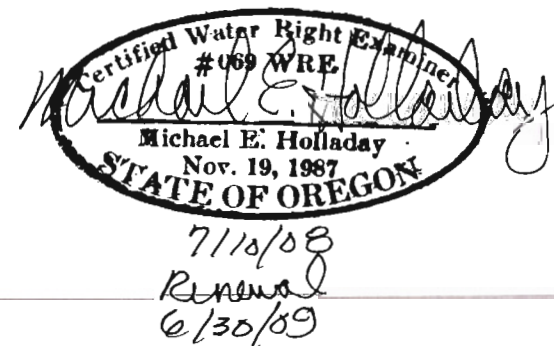 Certified Water Right Examiner
#069 WRE
Michael E. Holladay
Michael E. Holladay
Nov. 19, 1987
STATE OF OREGON
7/10/08
Renewal
6/30/09